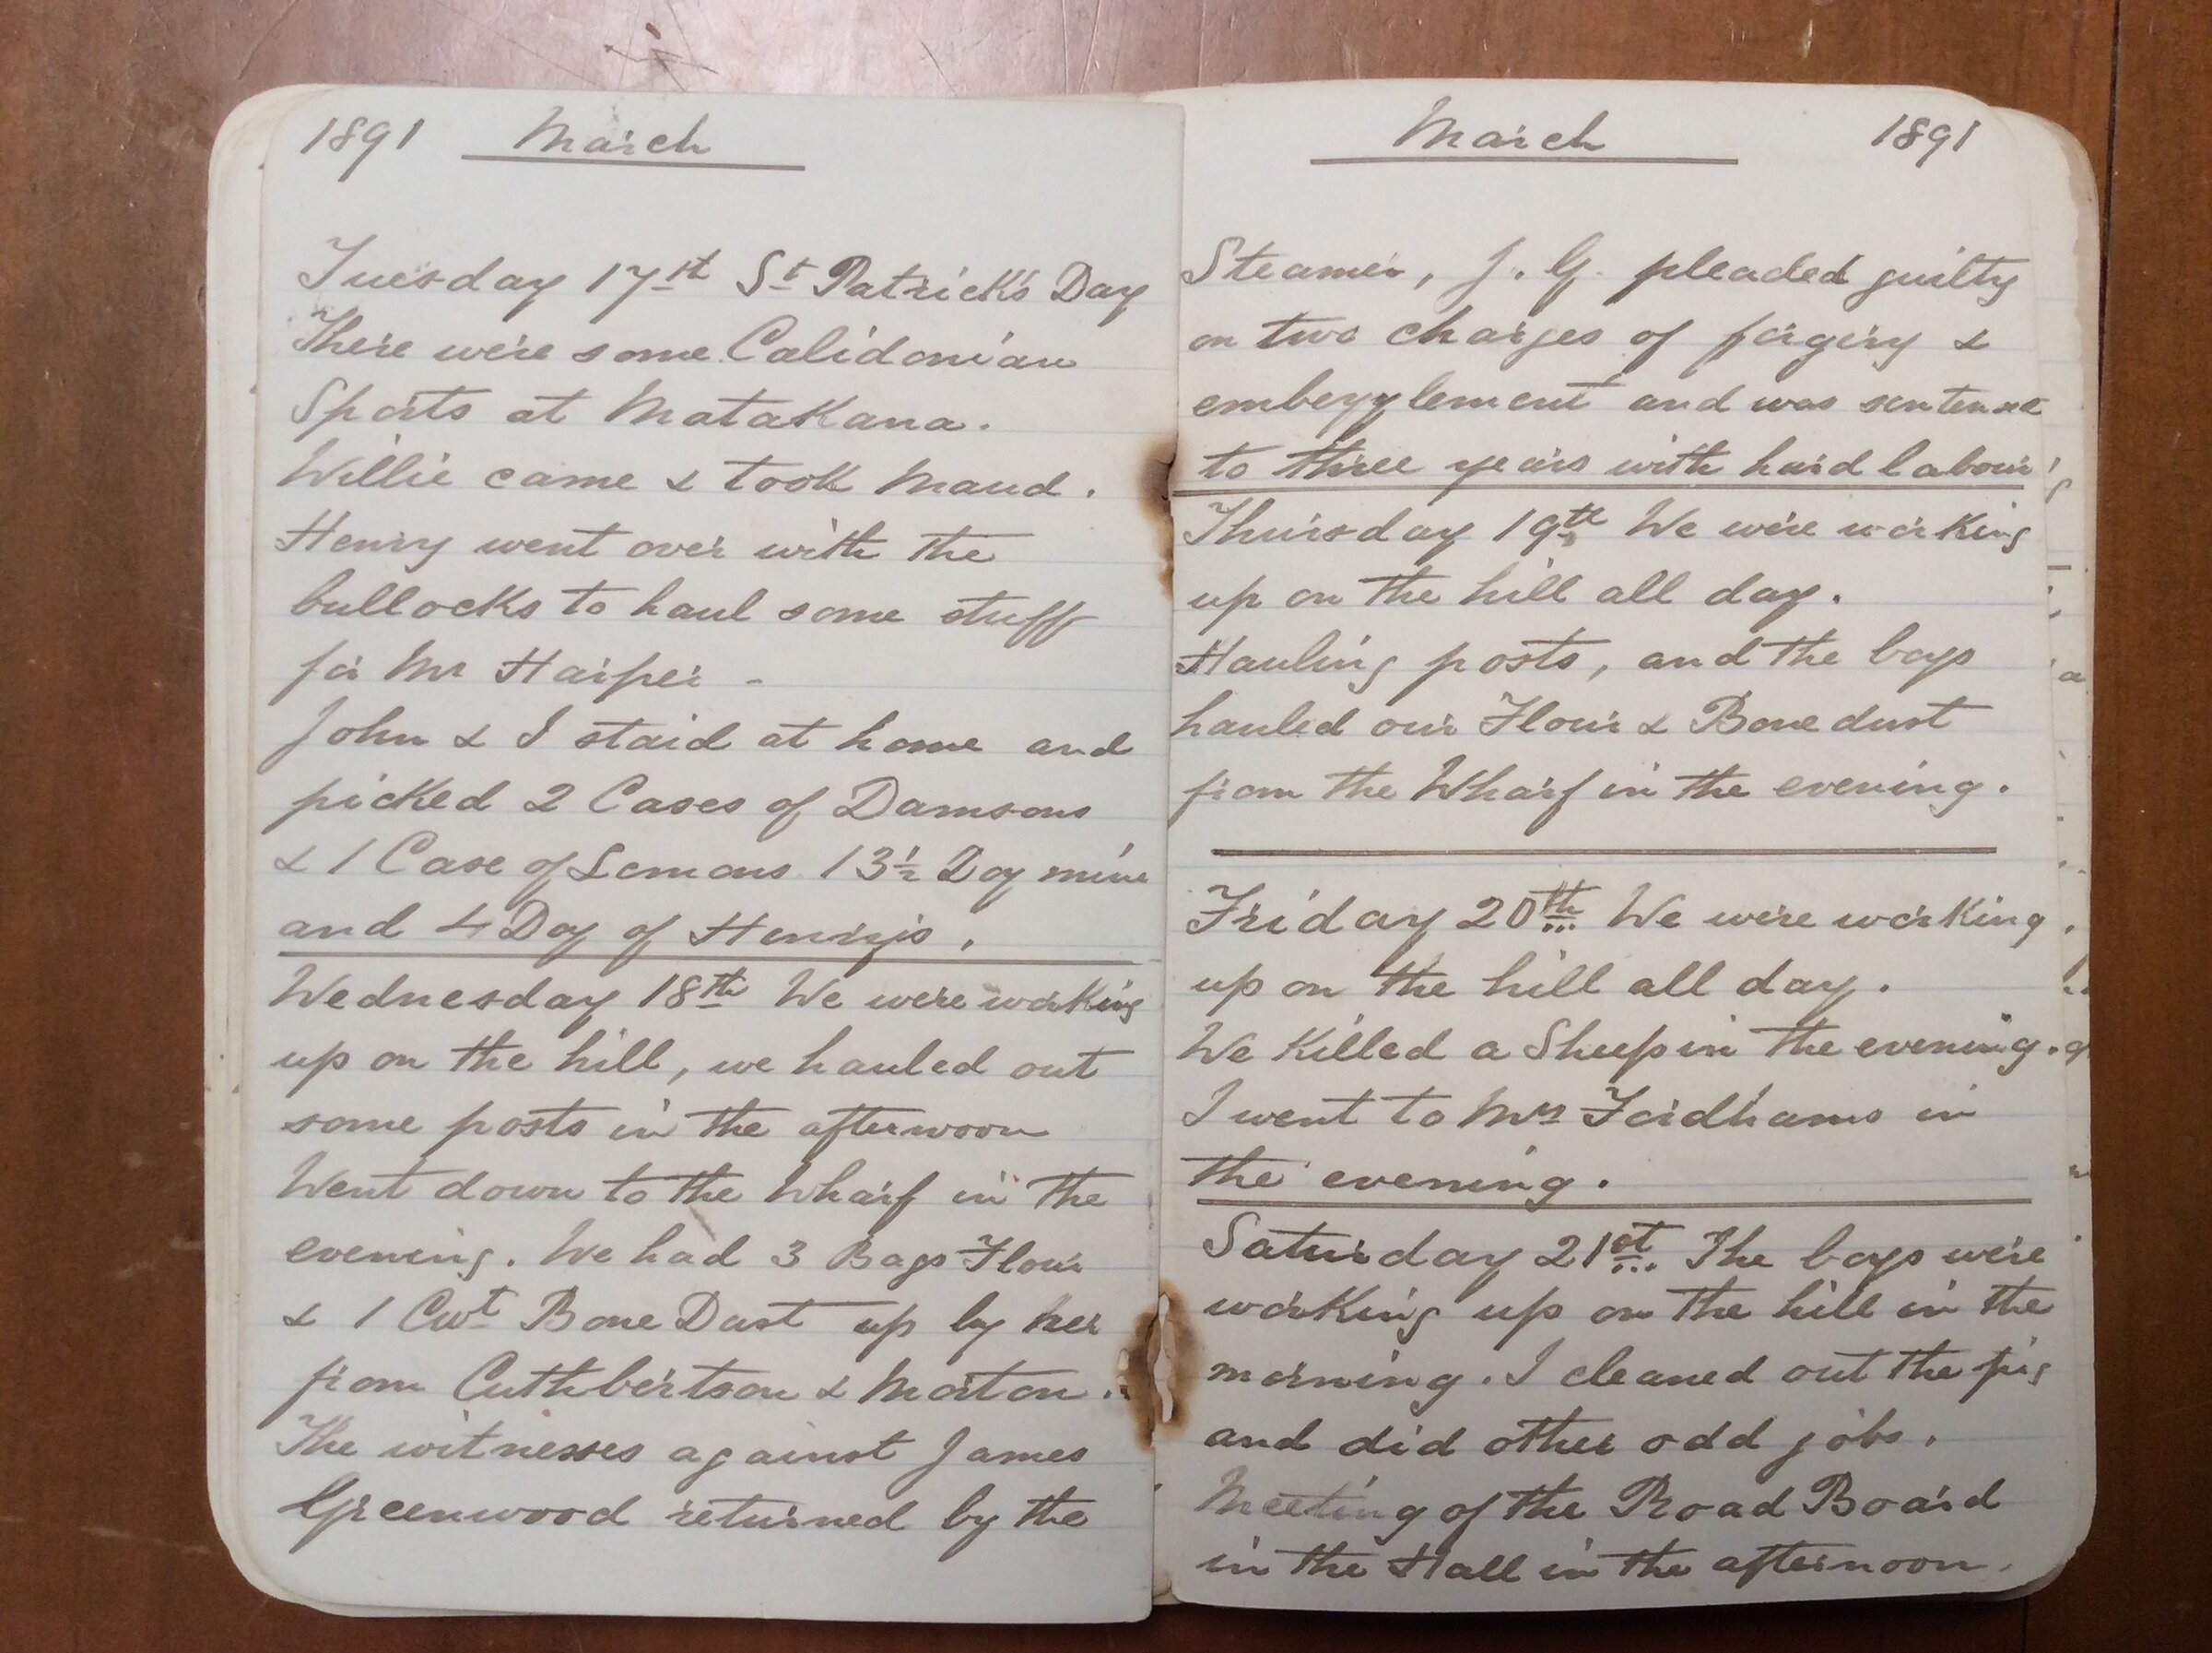 1891 March
Tuesday 17st St Patrick's Day
There were some Calidonian
Sports at Matakana.
Willie came & took Maud.
Henry went over with the
bullocks to haul some stuff
for Mr Harper -
John & I staid at home and
picked 2 Cases of Damsons
& 1 Case of Lemons 13½ Doz mine
and 4 Doz of Henrys.
Wednesday 18th We were working
up on the hill, we hauled out
some posts in the afternoon
Went down to the Wharf in the
evening. We had 3 Bags Flour
& 1 Cwt Bone Dust up by her
from Cuthbertson & Morton.
The witnesses against James
Greenwood returned by the
March 1891
Steamer, J. G. pleaded guilty
on two charges of forgery &
embezzlement and was
to three years with hard labour
Thursday 19th We were working
up on the hill all day.
Hauling posts, and the boys
hauled our Flour & Bone dust
from the Wharf in the evening.
Friday 20th We were working
up on the hill all day.
We Killed a Sheep in the evening.
I went to Mrs Fordhams in
the evening.
Saturday 21st The boys were
working up on the hill in the
morning. I cleaned out the pig
and did other odd jobs.
Meeting of the Road Board
in the Hall in the afternoon.